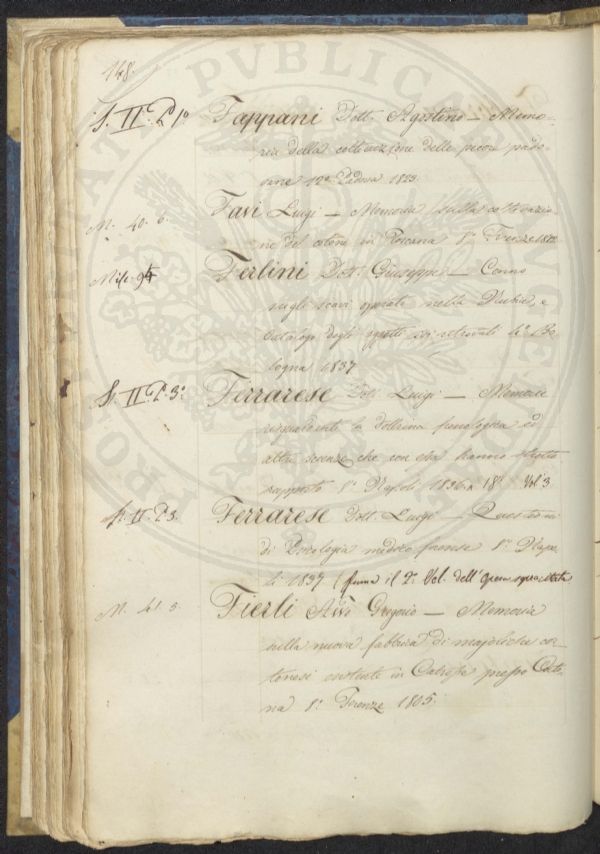 148.
S. II. P. 1º Fappani Dott. Agostino — Memo-
ria della coltivazione delle pecore pado-
vane 12º Padova 1823.
M. 40. 6. Favi Luigi — Memoria sulla coltivazio-
ne del cotone in Toscana 8º Firenze 1812
Misc. 94 Ferlini Dott. Giuseppe — Cenno
sugli scavi operati nella Nubia e
catalogo degli oggetti ivi ritrovati 4º Bo-
logna 1837
S. II. P. 3º Ferrarese Dott. Luigi — Memorie
risguardanti la dottrina frenologica ed
altre scienze che con essa hanno stretto
rapporto 8º Napoli 1836 Vol 3
S. II. P. 3. Ferrarese Dott. Luigi — Questioni
di Psicologia medico forense 8º Napo-
li 1837 (forma il 2º Vol. dell'opera sopracitata
M. 41. 3. Fierli Avvo Gregorio — Memoria
nella nuova fabbrica di majoliche cor-
tonesi esistente in Catrosse presso Corto-
na 8º Firenze 1805.
PUBLICAE